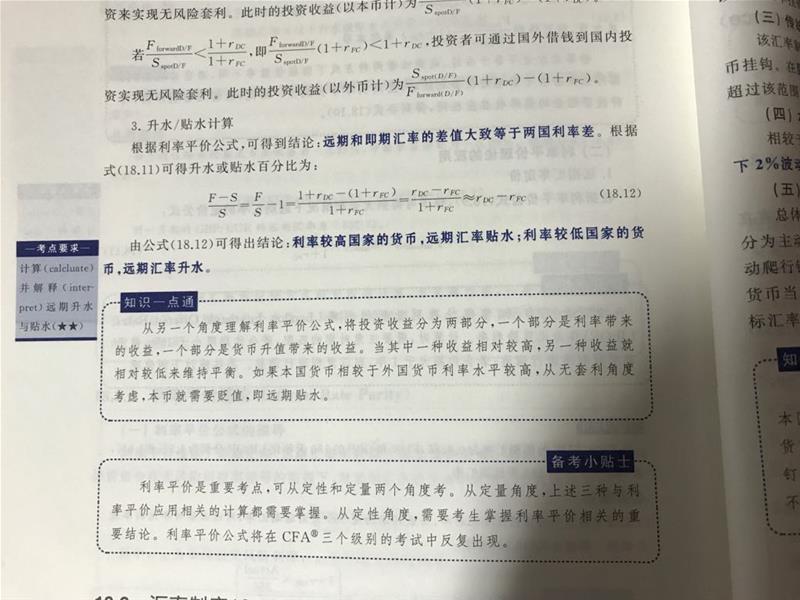 资来实现无风险套利。此时的投资收益(以本币计)为 S spotD/F
若 F forwardD/F / S spotD/F < 1+r_DC / 1+r_FC ,即 F forwardD/F / S spotD/F (1+r_FC)<1+r_DC,投资者可通过国外借钱到国内投
资实现无风险套利。此时的投资收益(以外币计)为 S spot(D/F) / F forward(D/F) (1+r_DC)-(1+r_FC)。
3. 升水/贴水计算
根据利率平价公式,可得到结论:远期和即期汇率的差值大致等于两国利率差。根据
式(18.11)可得升水或贴水百分比为:
F-S / S = F / S -1= 1+r_DC-(1+r_FC) / 1+r_FC = r_DC-r_FC / 1+r_FC ≈r_DC-r_FC (18.12)
由公式(18.12)可得出结论:利率较高国家的货币,远期汇率贴水;利率较低国家的货
币,远期汇率升水。
考点要求
计算(calcluate)
并解释(inter-
pret)远期升水
与贴水(★★)
知识一点通
从另一个角度理解利率平价公式,将投资收益分为两部分,一个部分是利率带来
的收益,一个部分是货币升值带来的收益。当其中一种收益相对较高,另一种收益就
相对较低来维持平衡。如果本国货币相较于外国货币利率水平较高,从无套利角度
考虑,本币就需要贬值,即远期贴水。
备考小贴士
利率平价是重要考点,可从定性和定量两个角度考。从定量角度,上述三种与利
率平价应用相关的计算都需要掌握。从定性角度,需要考生掌握利率平价相关的重
要结论。利率平价公式将在CFA®三个级别的考试中反复出现。
(三)
该汇率
币挂钩、在
超过该范围
(四)
相较于
下2%波动
(五)
总体
分为主动
动爬行钉
货币当
标汇率
知
本国
货
钉
不